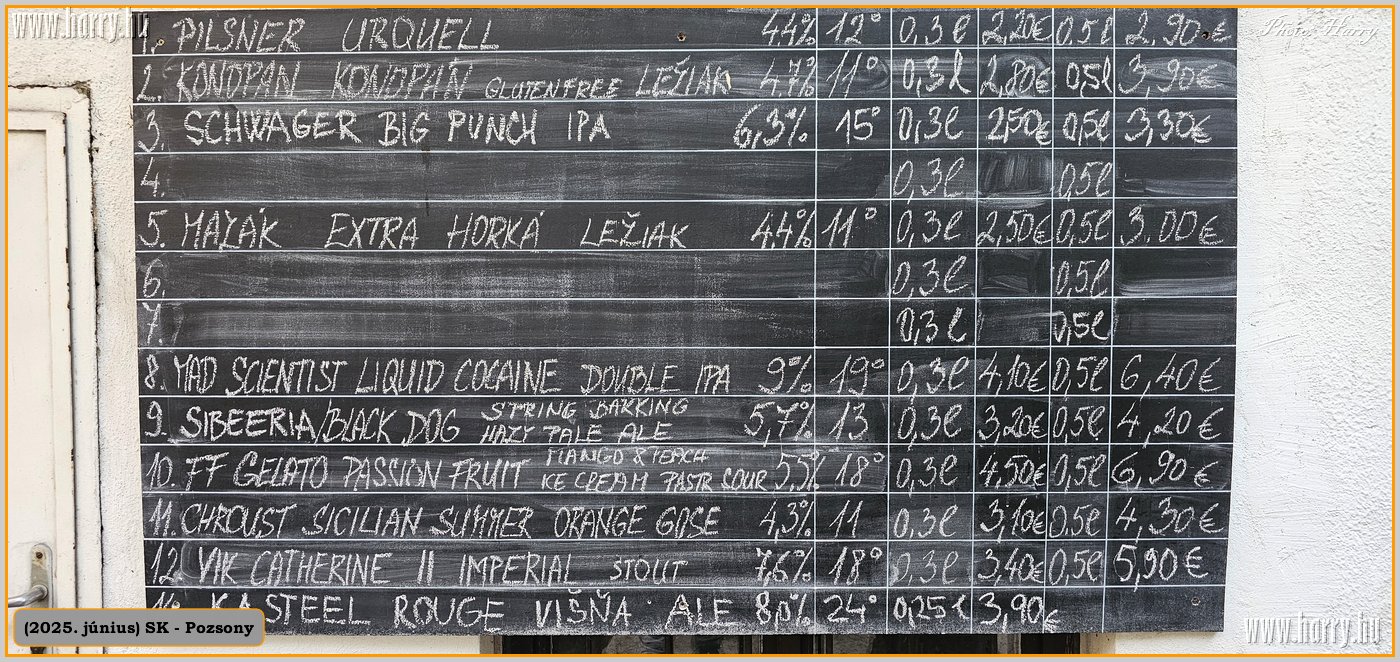 www.harry.hu
Photo: Harry
1. PILSNER URQUELL 4.4% 12° 0,3l 2,20€ 0,5l 2,90€
2. KONOPÁN KONOPÁŇ GLUTENFREE LEŽIAK 4.7% 11° 0,3l 2,80€ 0,5l 3,90€
3. SCHWAGER BIG PUNCH IPA 6,3% 15° 0,3l 2,50€ 0,5l 3,30€
4. 0,3l 0,5l
5. MAZÁK EXTRA HORKÁ LEŽIAK 4.4% 11° 0,3l 2,50€ 0,5l 3.00€
6. 0,3l 0,5l
7. 0,3l 0,5l
8. MAD SCIENTIST LIQUID COCAINE DOUBLE IPA 9% 19° 0,3l 4,10€ 0,5l 6,40€
9. SIBEERIA/BLACK DOG STRING BARKING HAZY PALE ALE 5,7% 13 0,3l 3,20€ 0,5l 4,20€
10. FF GELATO PASSION FRUIT MANGO & PEACH ICE CREAM PASTR SOUR 5,5% 18° 0,3l 4,50€ 0,5l 6,90€
11. CHROUST SICILIAN SUMMER ORANGE GOSE 4,3% 11 0,3l 3,10€ 0,5l 4,30€
12. VIK CATHERINE II IMPERIAL STOUT 7,6% 18° 0,3l 3,40€ 0,5l 5,90€
KASTEEL ROUGE VIŠŇA ALE 8,0% 24° 0,25l 3,90€
(2025. június) SK - Pozsony
www.harry.hu